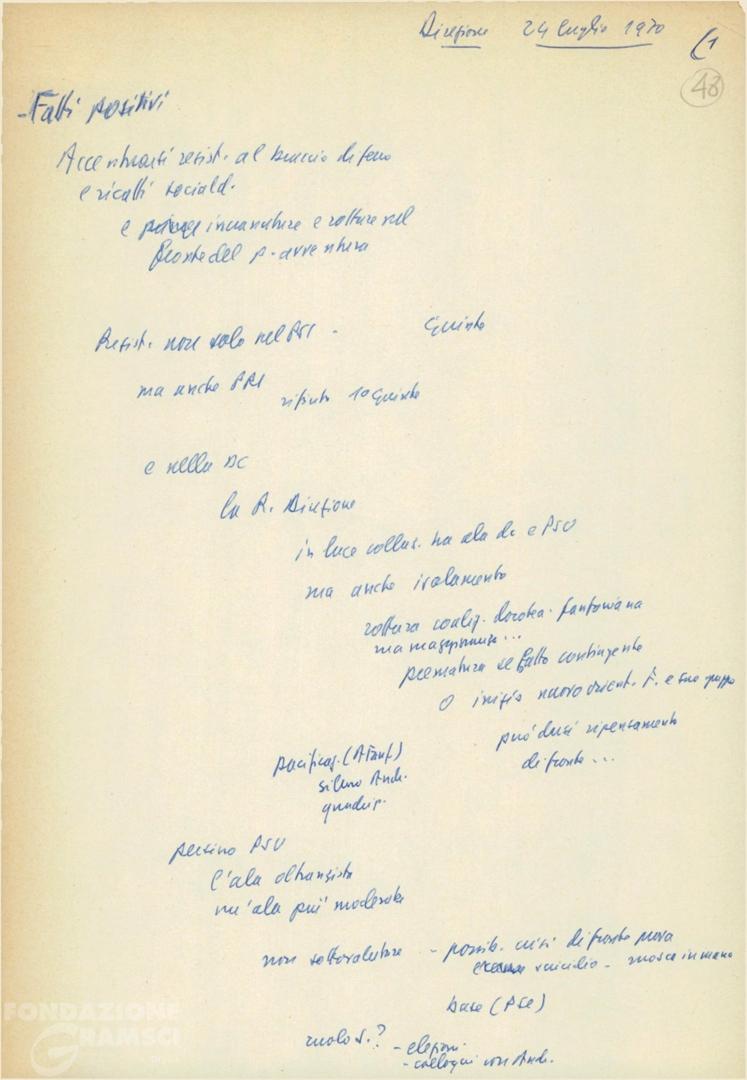 Direzione 24 luglio 1970
(1
48
- Fatti positivi
Accentuarsi resist. al braccio di ferro
e ricatti sociald.
e prime incrinature e rotture nel
fronte del p. avventura
Resist. non solo nel PSI - Giunte
ma anche PRI rifiuto Giunte
e nella DC
la R. Direzione
in luce collus. tra ala dc e PSU
ma anche isolamento
rottura coaliz. dorotea. fanfaniana
ma
prematura se fatto contingente
o inizio nuovo orient. F. e suo gruppo
può darsi ripensamento
di fronte ...
pacificaz. (A Fanf)
siluro And.
quadrip.
persino PSU
l'ala oltranzista
un'ala più moderata
non sottovalutare - possib. crisi di fronte prova
suicidio - mosca in mano
base (PSU)
ruolo S.? - elezioni
- colloqui con And.
FONDAZIONE
GRAMSCI